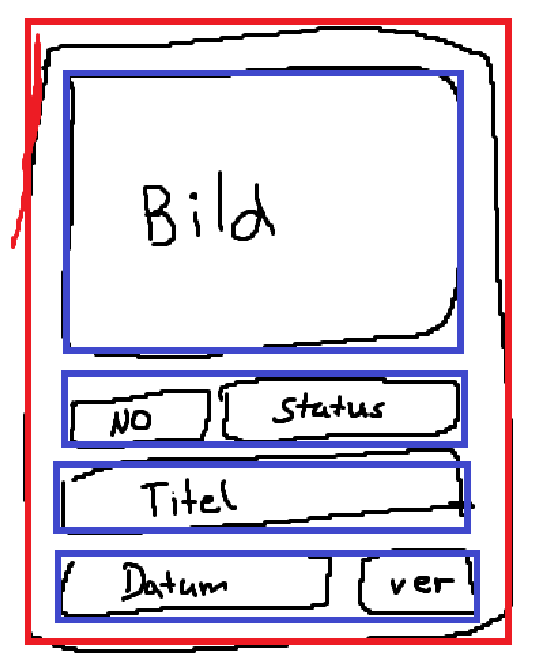 Bild
NO Status
Titel
Datum ver